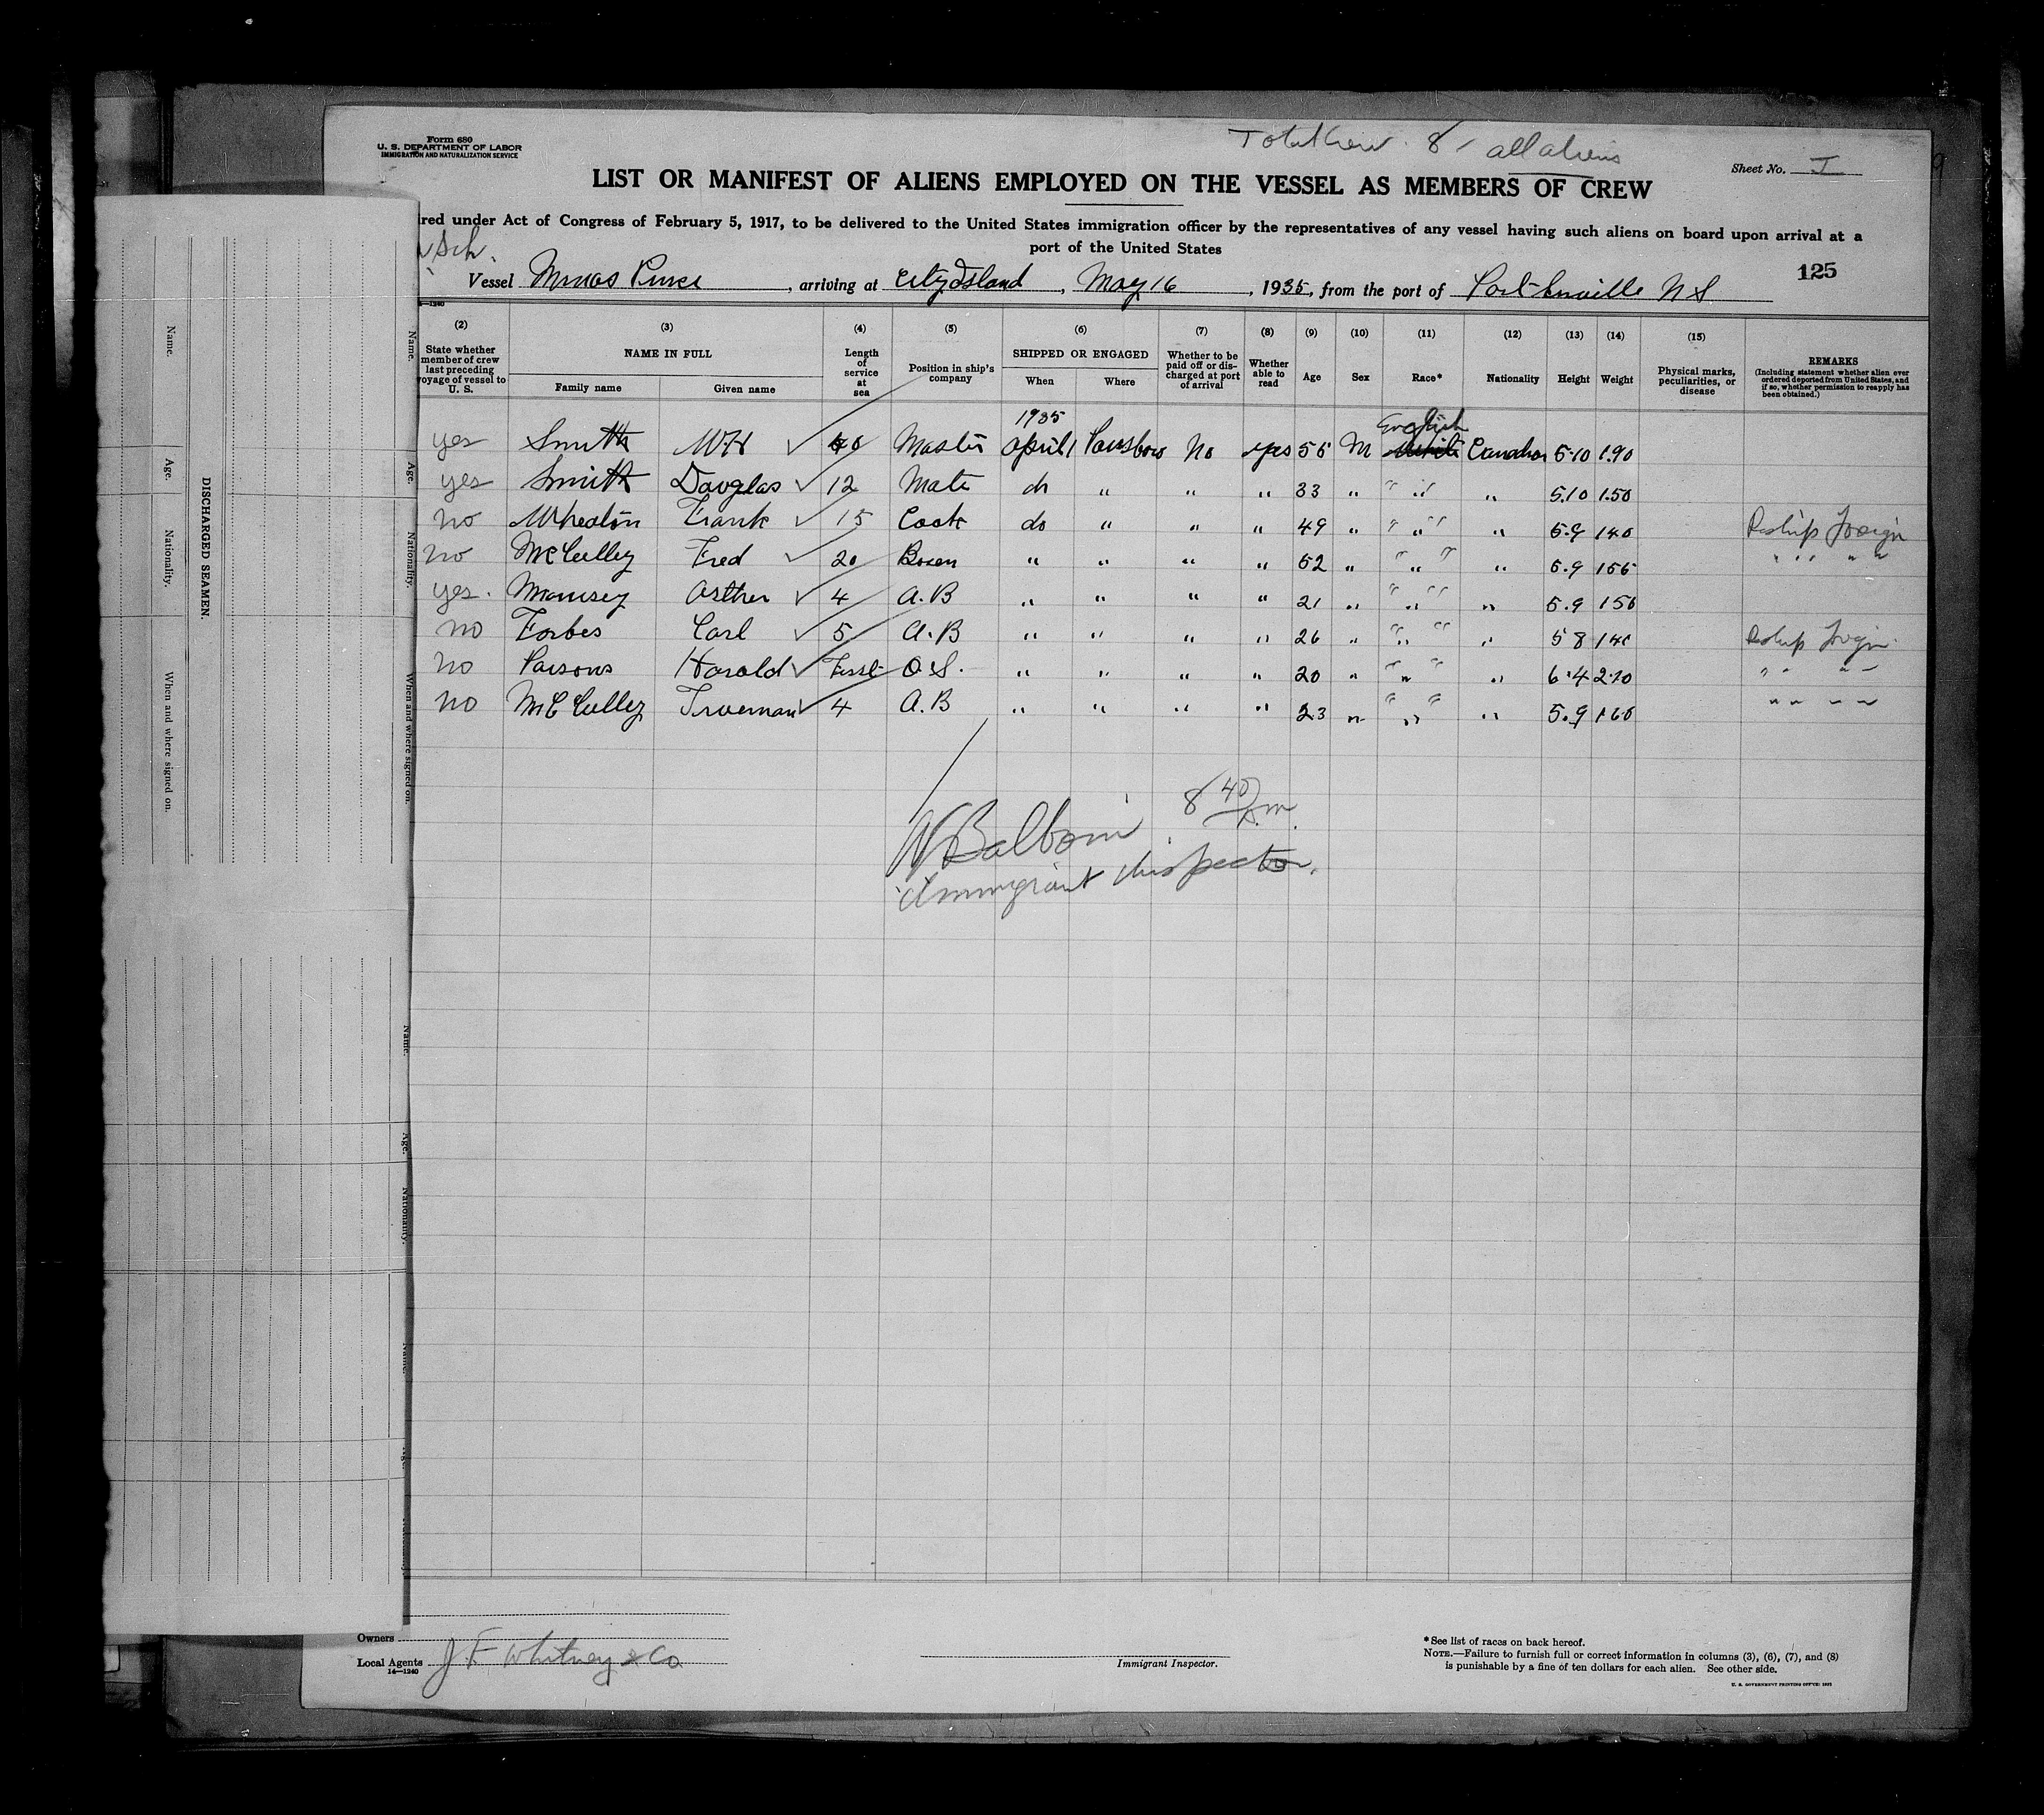 Form 680
U. S. DEPARTMENT OF LABOR
IMMIGRATION AND NATURALIZATION SERVICE
Total Crew 8 all aliens
Sheet No. I
LIST OR MANIFEST OF ALIENS EMPLOYED ON THE VESSEL AS MEMBERS OF CREW
red under Act of Congress of February 5, 1917, to be delivered to the United States immigration officer by the representatives of any vessel having such aliens on board upon arrival at a
port of the United States
Sch.
125
Vessel Minas Prince, arriving at City Island, May 16, 1935, from the port of Port Greville N S
(2) (3) (4) (5) (6) (7) (8) (9) (10) (11) (12) (13) (14) (15)
State whether member of crew last preceding voyage of vessel to U. S. NAME IN FULL Family name Given name Length of service at sea Position in ship's company SHIPPED OR ENGAGED When Where Whether to be paid off or discharged at port of arrival Whether able to read Age Sex Race* Nationality Height Weight Physical marks, peculiarities, or disease REMARKS (Including statement whether alien ever ordered deported from United States, and if so, whether permission to reapply has been obtained.)
1935 English
yes Smith WH 40 Master April 1 Parrsboro No yes 55 M Canadian 5.10 190
yes Smith Douglas 12 Mate do " " " 33 " " " " 5.10 150
no Wheaton Frank 15 Cook do " " " 49 " " " " 5.9 140 Reship foreign
no McCulley Fred 20 Bosen " " " " 52 " " " " 5.9 " " " "
yes. Arther 4 A.B " " " " 21 " " " " 5.9
no Forbes Carl 5 A.B " " " " 26 " " " " 5 8 Reship foreign
no Parsons Harold First O.S. " " " " 20 " " " " 6.4 210 " " " "
no McCulley Trueman 4 A.B " " " " 23 " " " " 5.9 160 " " " "
8 40
Immigrant Inspector.
Owners
Local Agents J. F. Whitney & Co
14—1240
Immigrant Inspector.
*See list of races on back hereof.
NOTE.—Failure to furnish full or correct information in columns (3), (6), (7), and (8)
is punishable by a fine of ten dollars for each alien. See other side.
DISCHARGED SEAMEN.
Name.
Age.
Nationality.
When and where signed on.
Name.
Age.
Nationality.
When and where signed on.
Name.
Age.
Nationality.